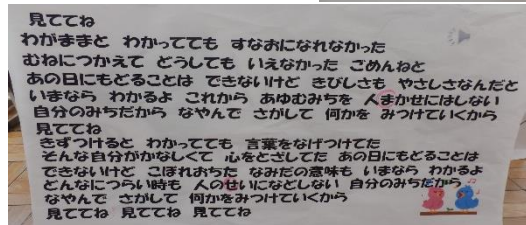 見ててね
わがままと わかってても すなおになれなかった
むねにつかえて どうしても いえなかった ごめんねと
あの日にもどることは できないけど きびしさも やさしさなんだと
いまなら わかるよ これから あゆむみちを 人まかせにはしない
自分のみちだから なやんで さがして 何かを みつけていくから
見ててね
きずつけると わかってても 言葉をなげつけてた
そんな自分がかなしくて 心をとざしてた あの日にもどることは
できないけど こぼれおちた なみだの意味も いまなら わかるよ
どんなにつらい時も 人のせいになどしない 自分のみちだから
なやんで さがして 何かをみつけていくから
見ててね 見ててね 見ててね